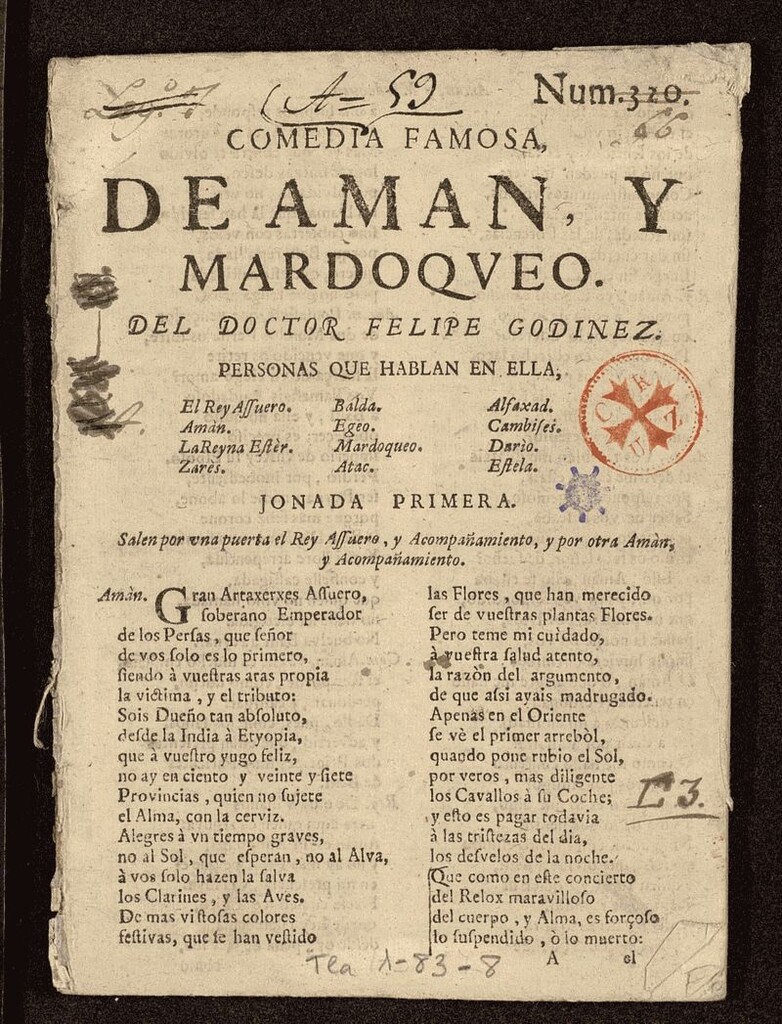 (A= 59
Num. 320.
66
COMEDIA FAMOSA,
DE AMAN, Y
MARDOQVEO.
DEL DOCTOR FELIPE GODINEZ.
PERSONAS QUE HABLAN EN ELLA,
El Rey Aſſuero. Balda. Alfaxad.
Amàn. Egeo. Cambiſes.
LaReyna Eſtèr. Mardoqueo. Dario.
Zarès. Atac. Eſtela.
CRUZ
JONADA PRIMERA.
Salen por vna puerta el Rey Aſſuero, y Acompañamiento, y por otra Amàn,
y Acompañamiento.
Amàn. Gran Artaxerxes Aſſuero,
ſoberano Emperador
de los Perſas, que ſeñor
de vos ſolo es lo primero,
ſiendo à vueſtras aras propia
la victima, y el tributo:
Sois Dueño tan abſoluto,
deſde la India à Etyopia,
que à vueſtro yugo feliz,
no ay en ciento y veinte y ſiete
Provincias, quien no ſujete
el Alma, con la cerviz.
Alegres à vn tiempo graves,
no al Sol, que eſperan, no al Alva,
à vos ſolo hazen la ſalva
los Clarines, y las Aves.
De mas viſtoſas colores
feſtivas, que ſe han veſtido
las Flores, que han merecido
ſer de vueſtras plantas Flores.
Pero teme mi cuidado,
à vueſtra ſalud atento,
la razòn del argumento,
de que aſsi ayais madrugado.
Apenas en el Oriente
ſe vè el primer arrebòl,
quando pone rubio el Sol,
por veros, mas diligente
los Cavallos à ſu Coche;
y eſto es pagar todavia
à las triſtezas del dia,
los deſvelos de la noche.
Que como en eſte concierto
del Relox maravilloſo
del cuerpo, y Alma, es forçoſo
lo ſuſpendido, ò lo muerto:
A el
L 3.
Tea 1-83-8